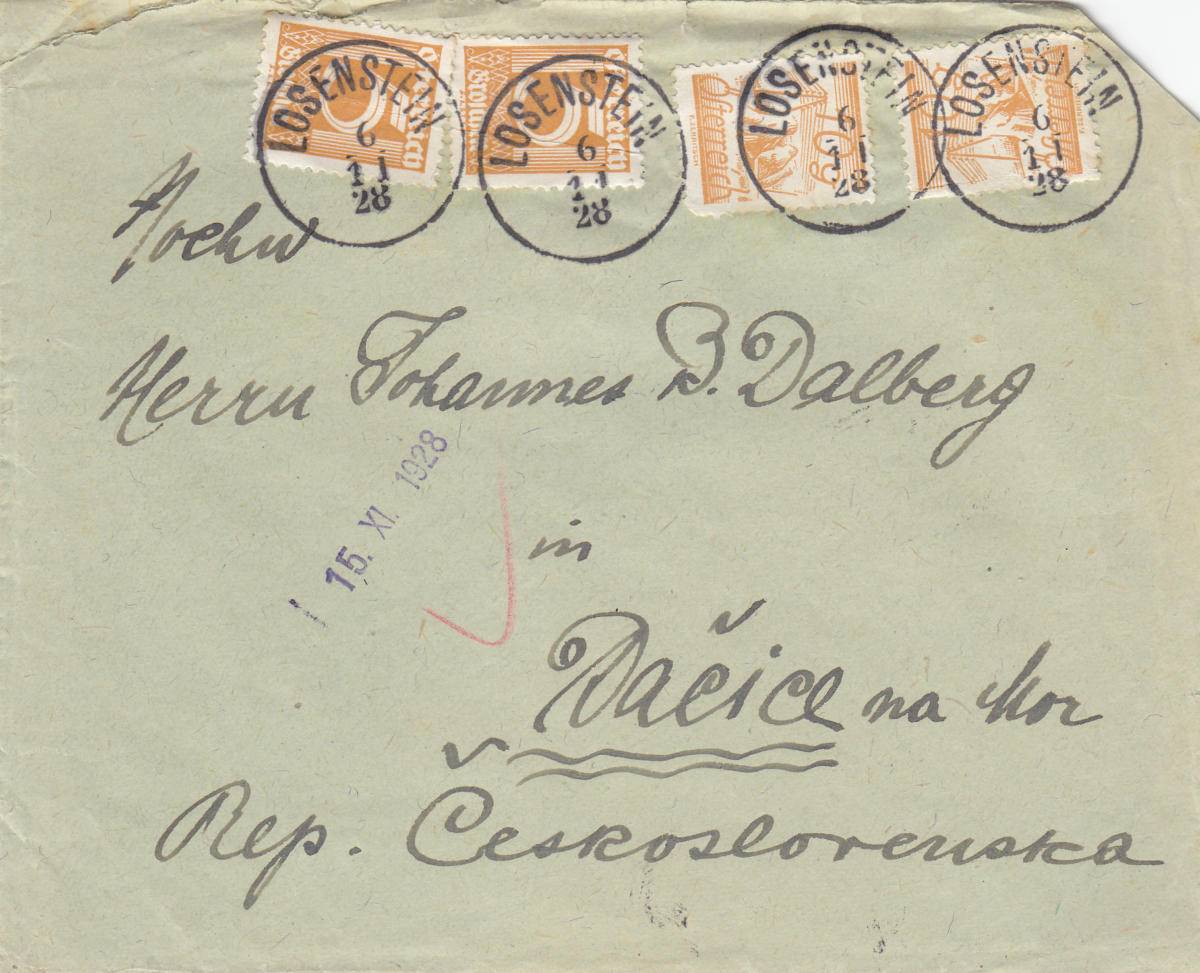 LOSENSTEIN 6 11 28
LOSENSTEIN 6 11 28
LOSENSTEIN 6 11 28
LOSENSTEIN 6 11 28
5
5
Österreich
Herrn Johannes B. Dalberg
15. XI. 1928
in
Dačice na Mor
Rep. Československa